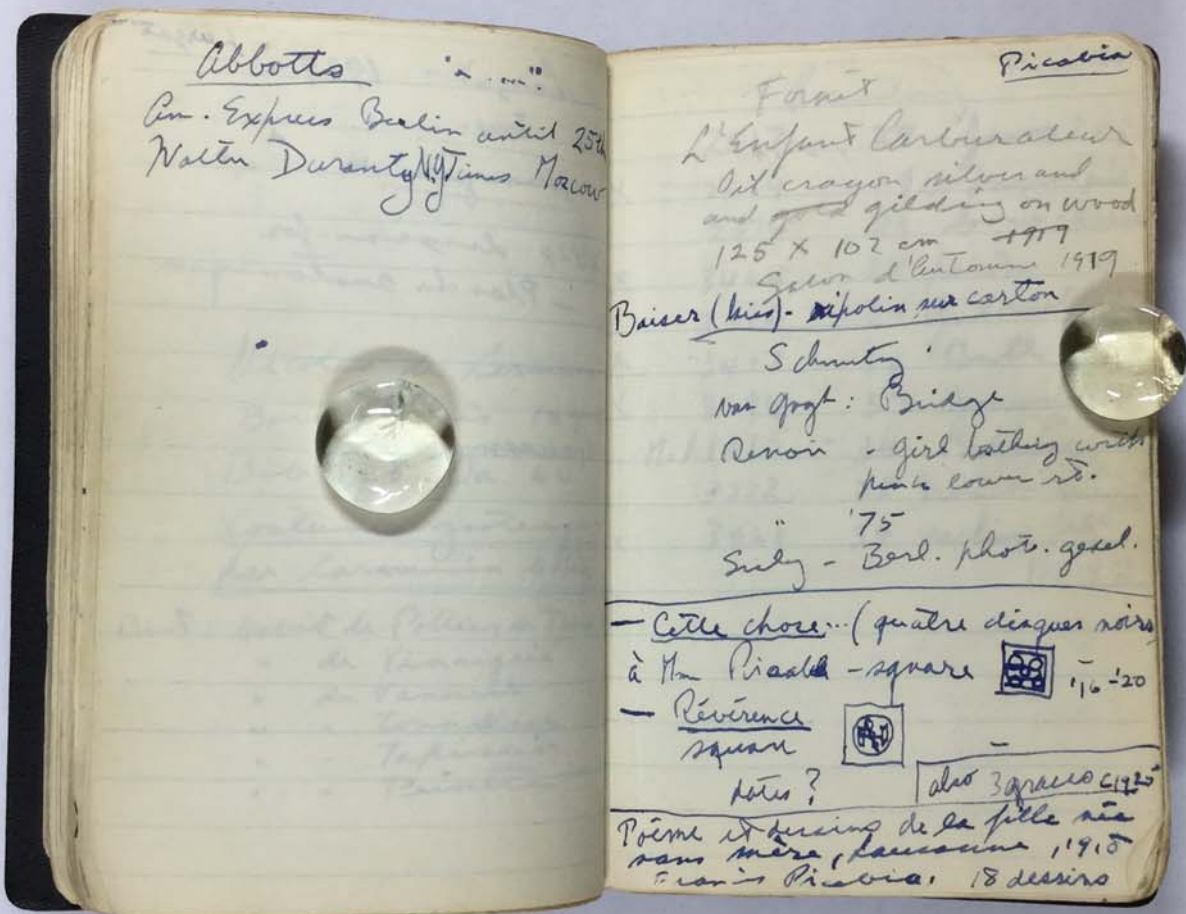 Abbotts
Am. Express Berlin until 25th
Walter Duranty N.Y Times Moscow
Picabia
L'Enfant Carburateur
Oil crayon silver and
and gold gilding on wood
125 X 102 cm 1919
Salon d'Automne 1919
Baiser (kiss) - ripolin sur carton
van Gogh: Bridge
Renoir - girl bathing with
'75
- Berl. phot. gesel.
— Cette chose... (quatre disques noirs
à Mm - square '16-'20
— Révérence
square
dates?
also 3 graces c1925
Poème et dessins de la fille née
sans mère, Lausanne, 1918
Francis Picabia. 18 dessins